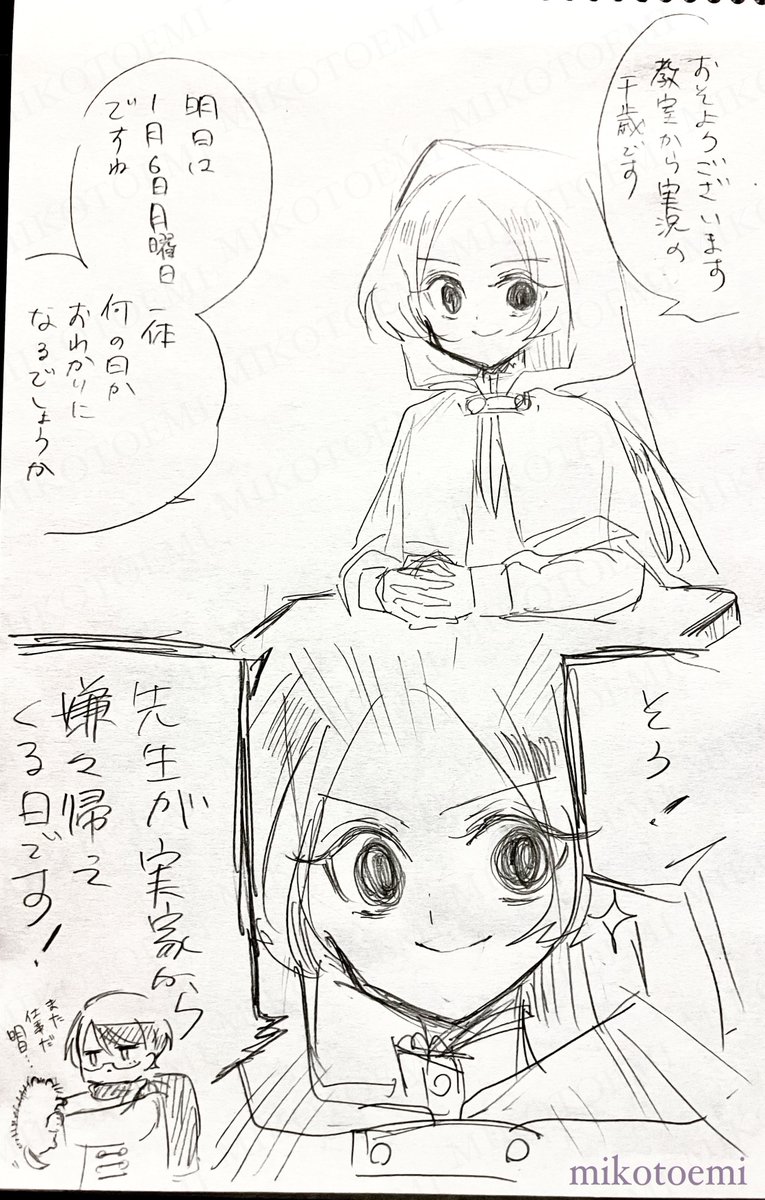 おそようございます
教室から実況の
千歳です
明日は
1月6日月曜日
ですね
一体
何の日か
おわかりに
なるでしょうか
そう!
先生が実家から
嫌々帰って
くる日です!
また
仕事だ
明日…
mikotoemi